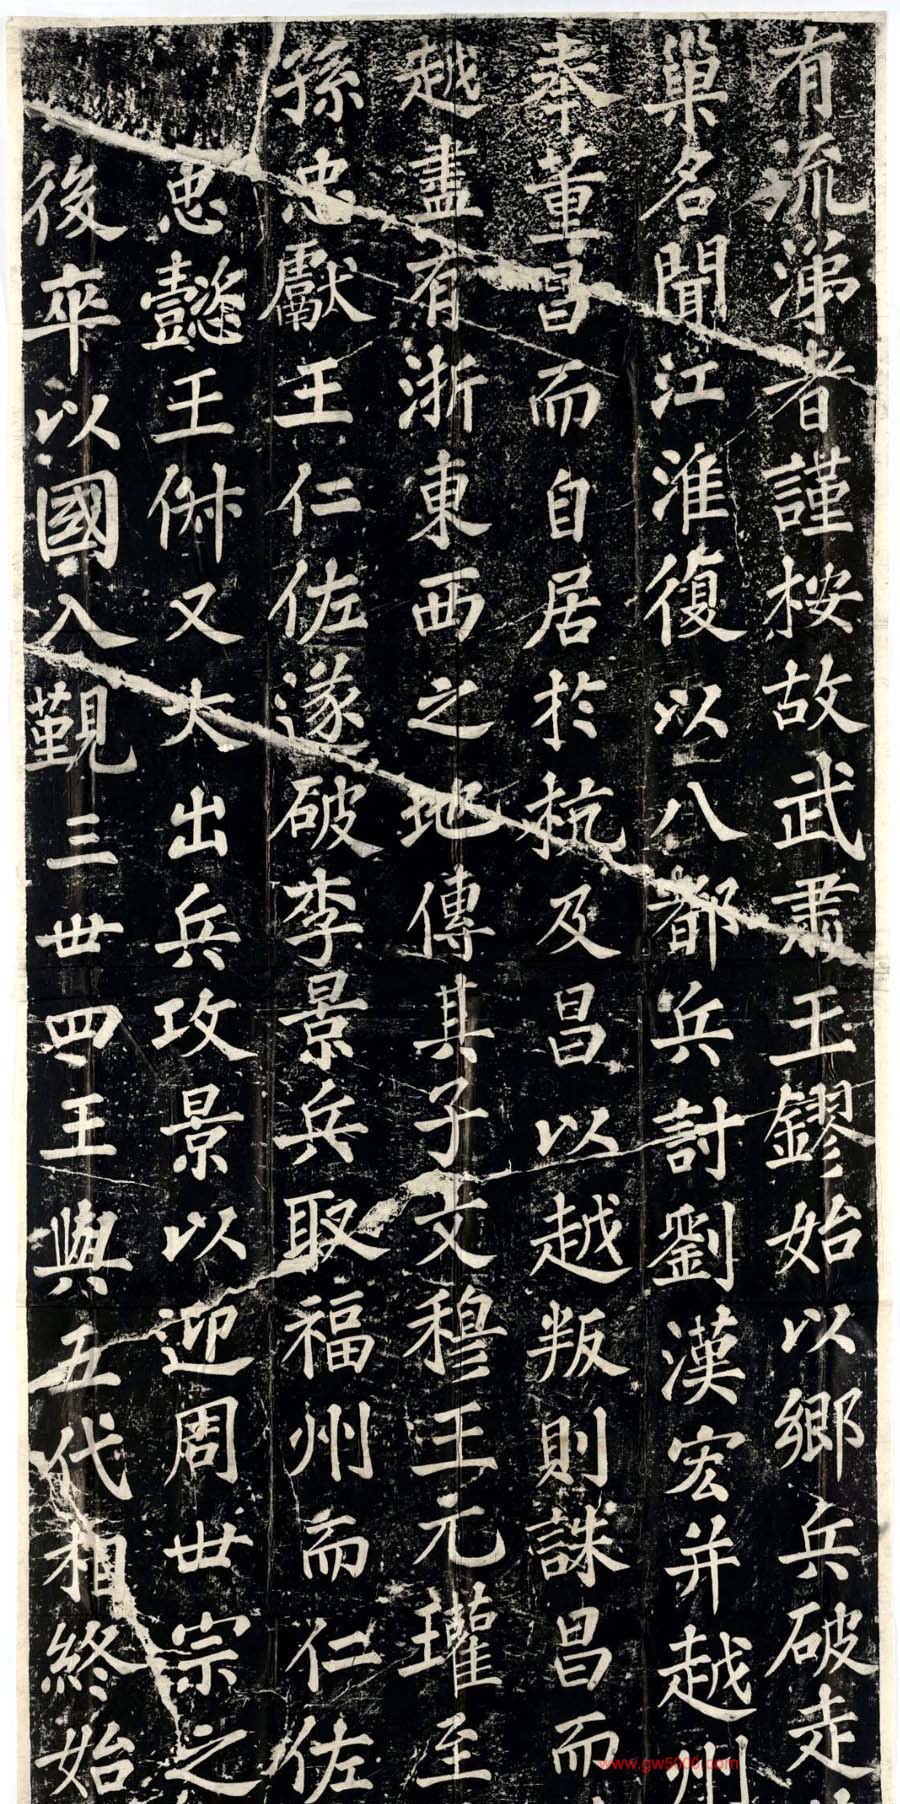 有流涕者謹按故武肅王鏐始以鄉兵破走
巢名聞江淮復以八都兵討劉漢宏并越州
奉董昌而自居於杭及昌以越叛則誅昌而
越盡有浙東西之地傳其子文穆王元瓘至
孫忠獻王仁佐遂破李景兵取福州而仁佐
忠懿王俶又大出兵攻景以迎周世宗之
後卒以國入覲三世四王與五代相終始
www.gw5000.com